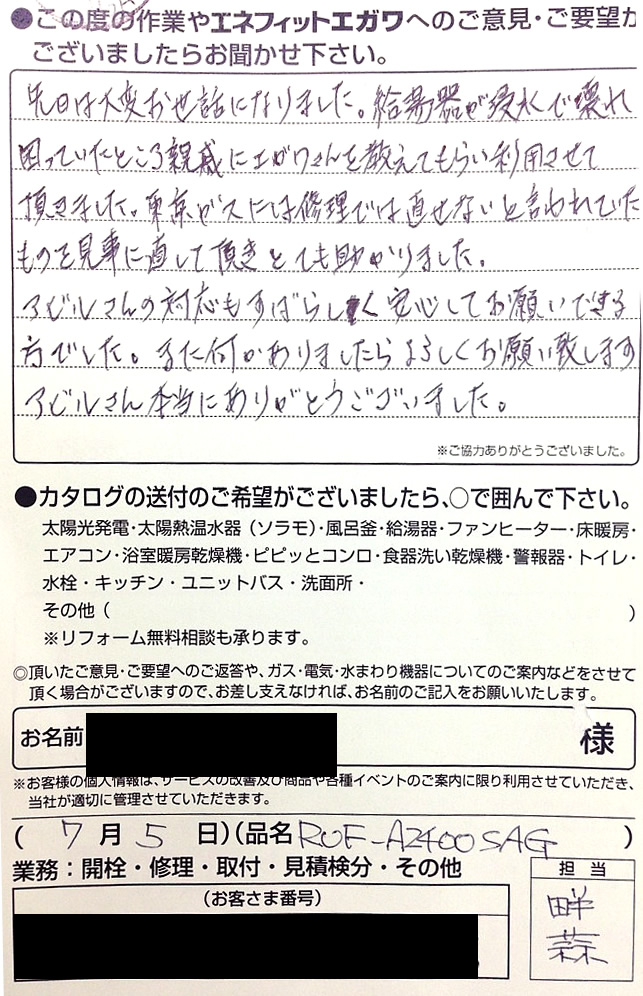 ●この度の作業やエネフィットエガワへのご意見・ご要望が
ございましたらお聞かせ下さい。
先日は大変お世話になりました。給湯器が浸水で壊れ
困っていたところ親戚にエガワさんを教えてもらい利用させて
頂きました。東京ガスには修理では直せないと言われていた
ものを見事に直して頂きとても助かりました。
アビルさんの対応もすばらしく安心してお願いできる
方でした。また何かありましたらよろしくお願い致します
アビルさん本当にありがとうございました。
※ご協力ありがとうございました。
●カタログの送付のご希望がございましたら、○で囲んで下さい。
太陽光発電・太陽熱温水器（ソラモ）・風呂釜・給湯器・ファンヒーター・床暖房・
エアコン・浴室暖房乾燥機・ピピッとコンロ・食器洗い乾燥機・警報器・トイレ・
水栓・キッチン・ユニットバス・洗面所・
その他（　　）
※リフォーム無料相談も承ります。
◎頂いたご意見・ご要望へのご返答や、ガス・電気・水まわり機器についてのご案内などをさせて
頂く場合がございますので、お差し支えなければ、お名前のご記入をお願いいたします。
お名前　　様
※お客様の個人情報は、サービスの改善及び商品や各種イベントのご案内に限り利用させていただき、
当社が適切に管理させていただきます。
（ 7 月 5 日）（品名 RUF-A2400SAG ）
業務：開栓・修理・取付・見積検分・その他
（お客さま番号）
担当
畔
蒜